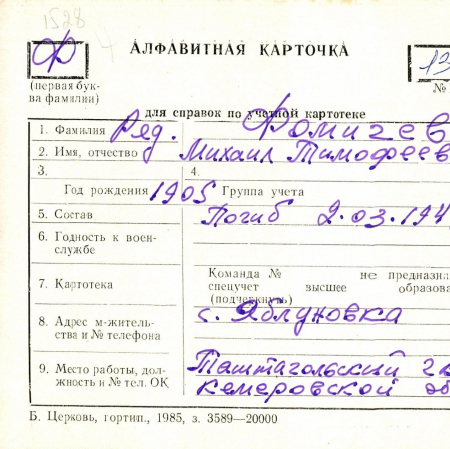 1528
Ф
АЛФАВИТНАЯ КАРТОЧКА
13
(первая бук-
ва фамилии)
№
для справок по учетной картотеке
1. Фамилия Ряд. Фомичев
2. Имя, отчество Михаил Тимофеев
3.
4.
Год рождения 1905 Группа учета
5. Состав Погиб 2.03.194
6. Годность к воен-
службе
7. Картотека
Команда № не предназна
спецучет высшее образова
(подчеркнуть)
8. Адрес м-житель-
ства и № телефона
с. Яблуновка
9. Место работы, дол-
жность и № тел. ОК
Таштагольский
Кемеровской об
Б. Церковь, гортип., 1985, з. 3589—20000